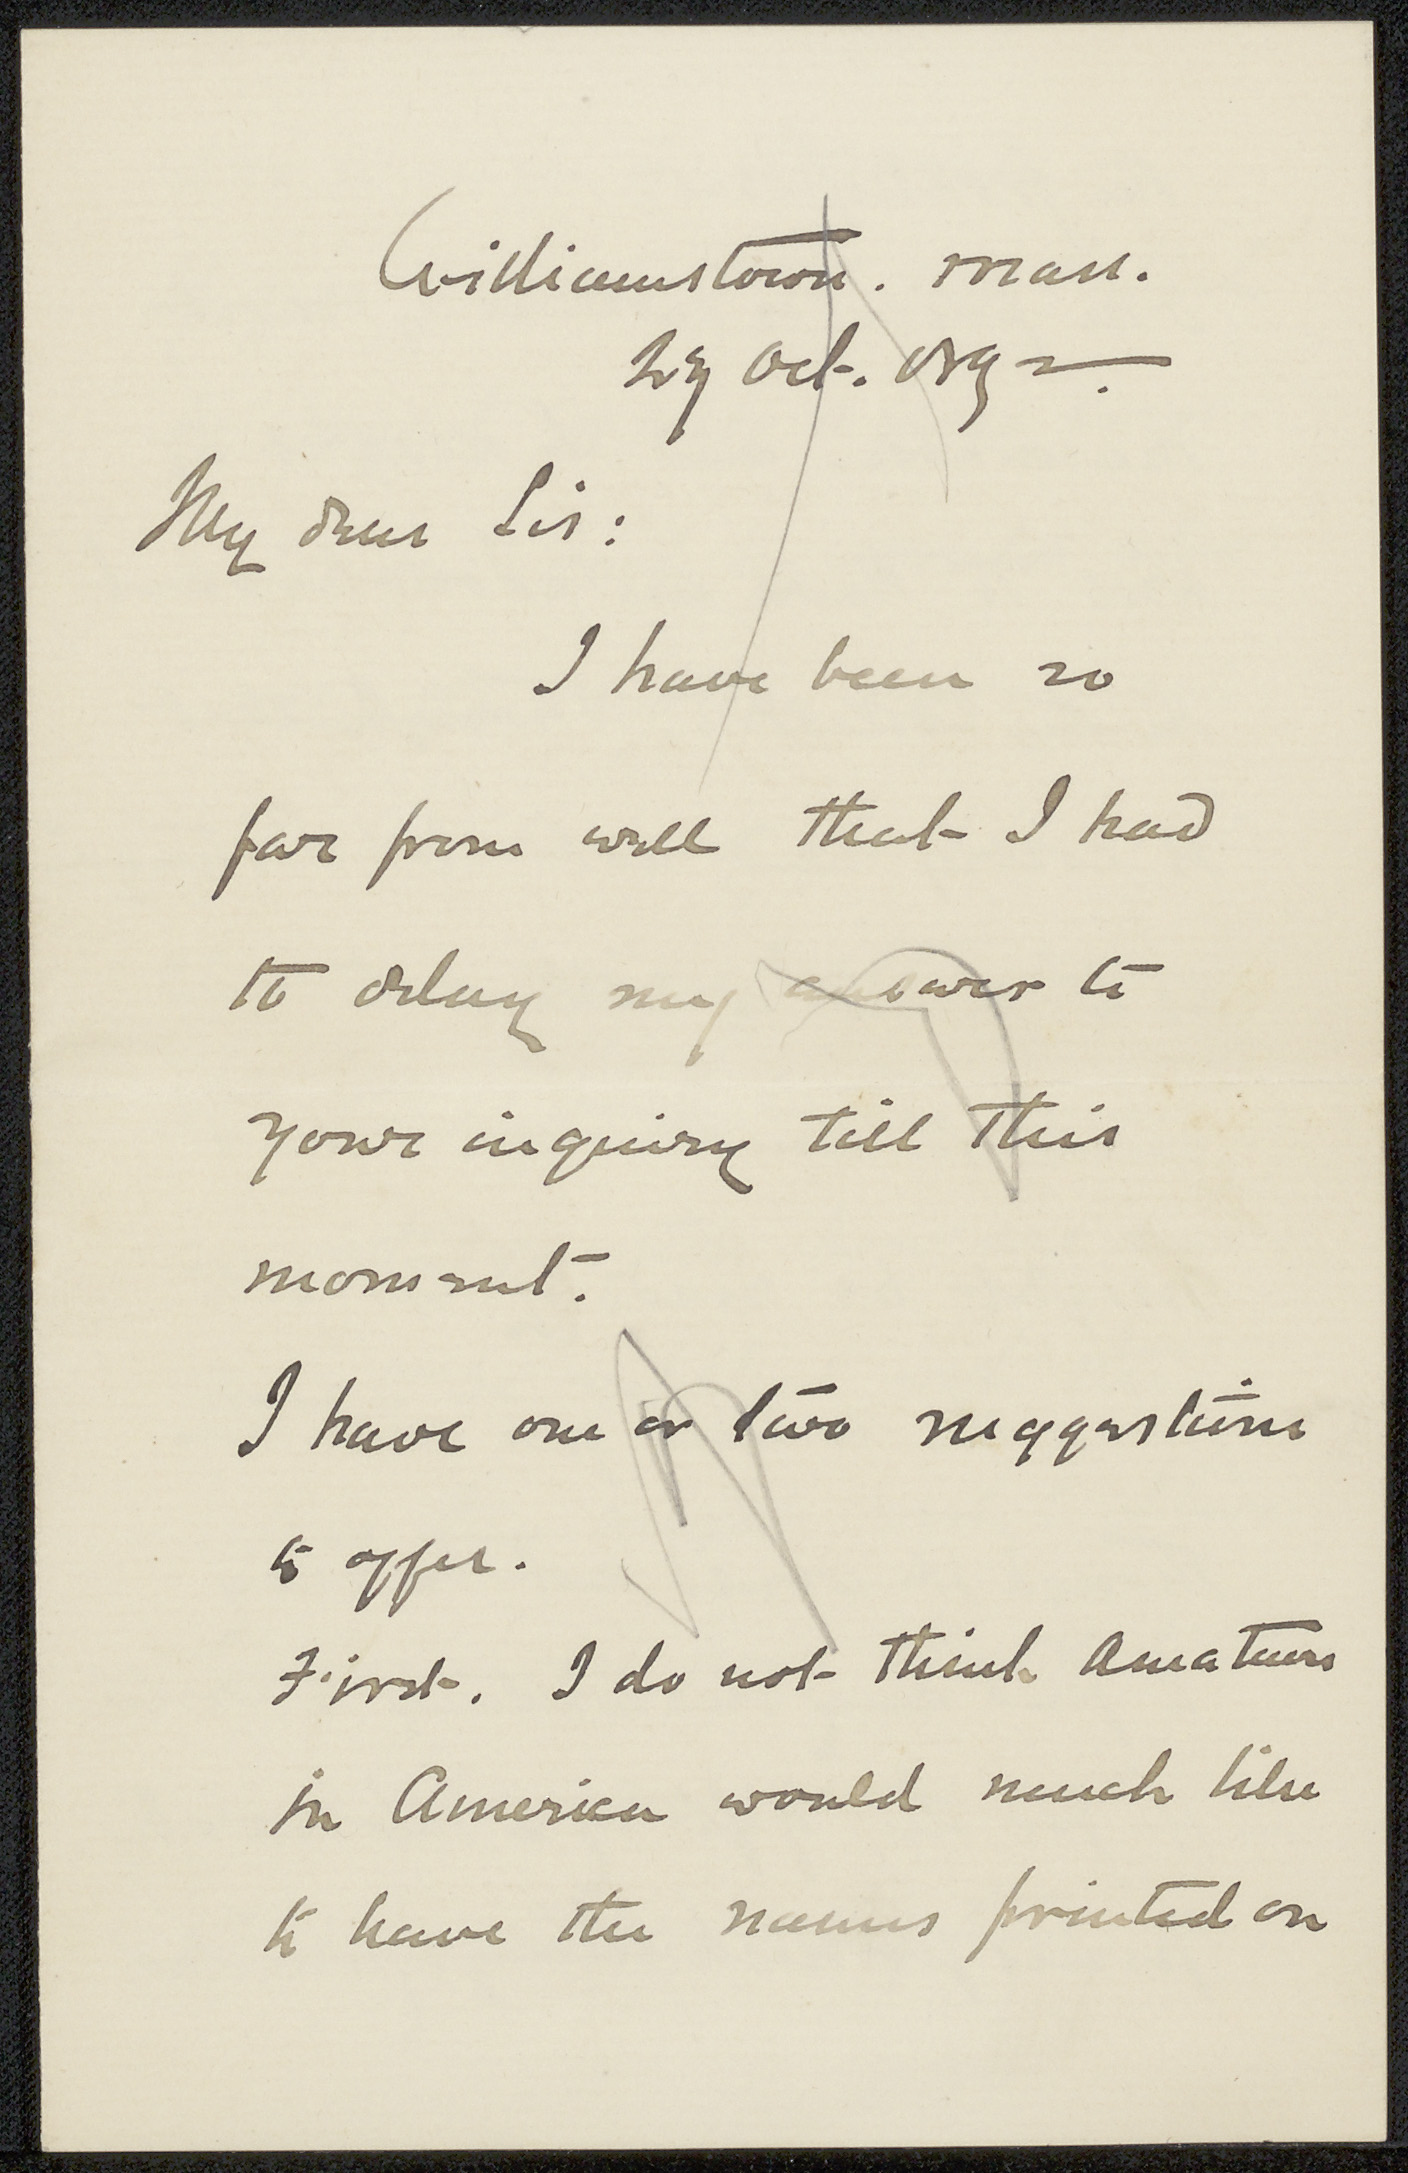 Williamstown. Mass.
29 Oct. 1892.
My dear Sir:
I have been so
far from well that I had
to delay my answer to
your inquiry till this
moment.
I have one or two suggestions
to offer.
First. I do not think Amateurs
in America would much like
to have the names printed on